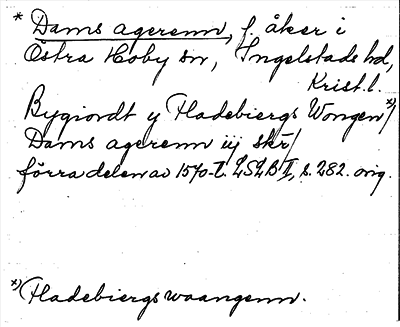 * Dams agerenn, f. åker i
Östra Hoby sn, Ingelstads hd,
Krist. l.
Bygiordt y Fladebiergs Wongen x)/
Dams agerenn iij skr/
förra delen av 1570-t. LSLB II, s. 282. orig.
x) Fladebiergs waangenn.